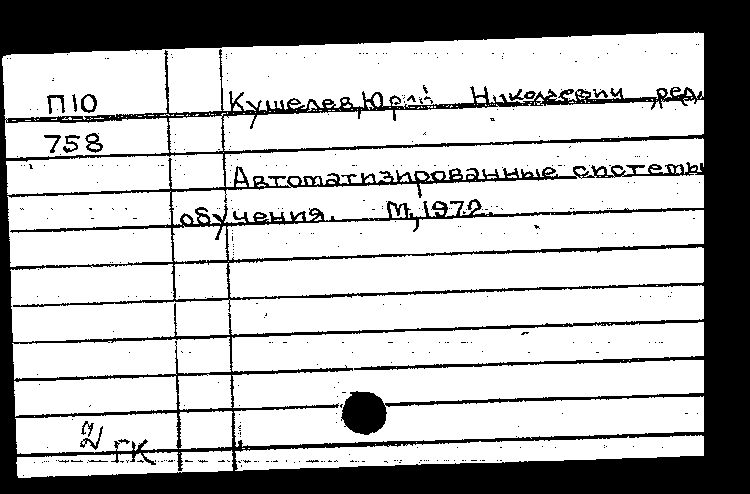 П10 Кушелев, Юрий Николаевич, ред.
758
Автоматизированные системы
обучения. М, 1972.
2/ ГК